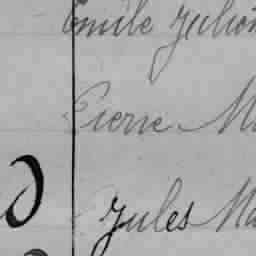 Emile Julion
Pierre Ma
Jules Ma